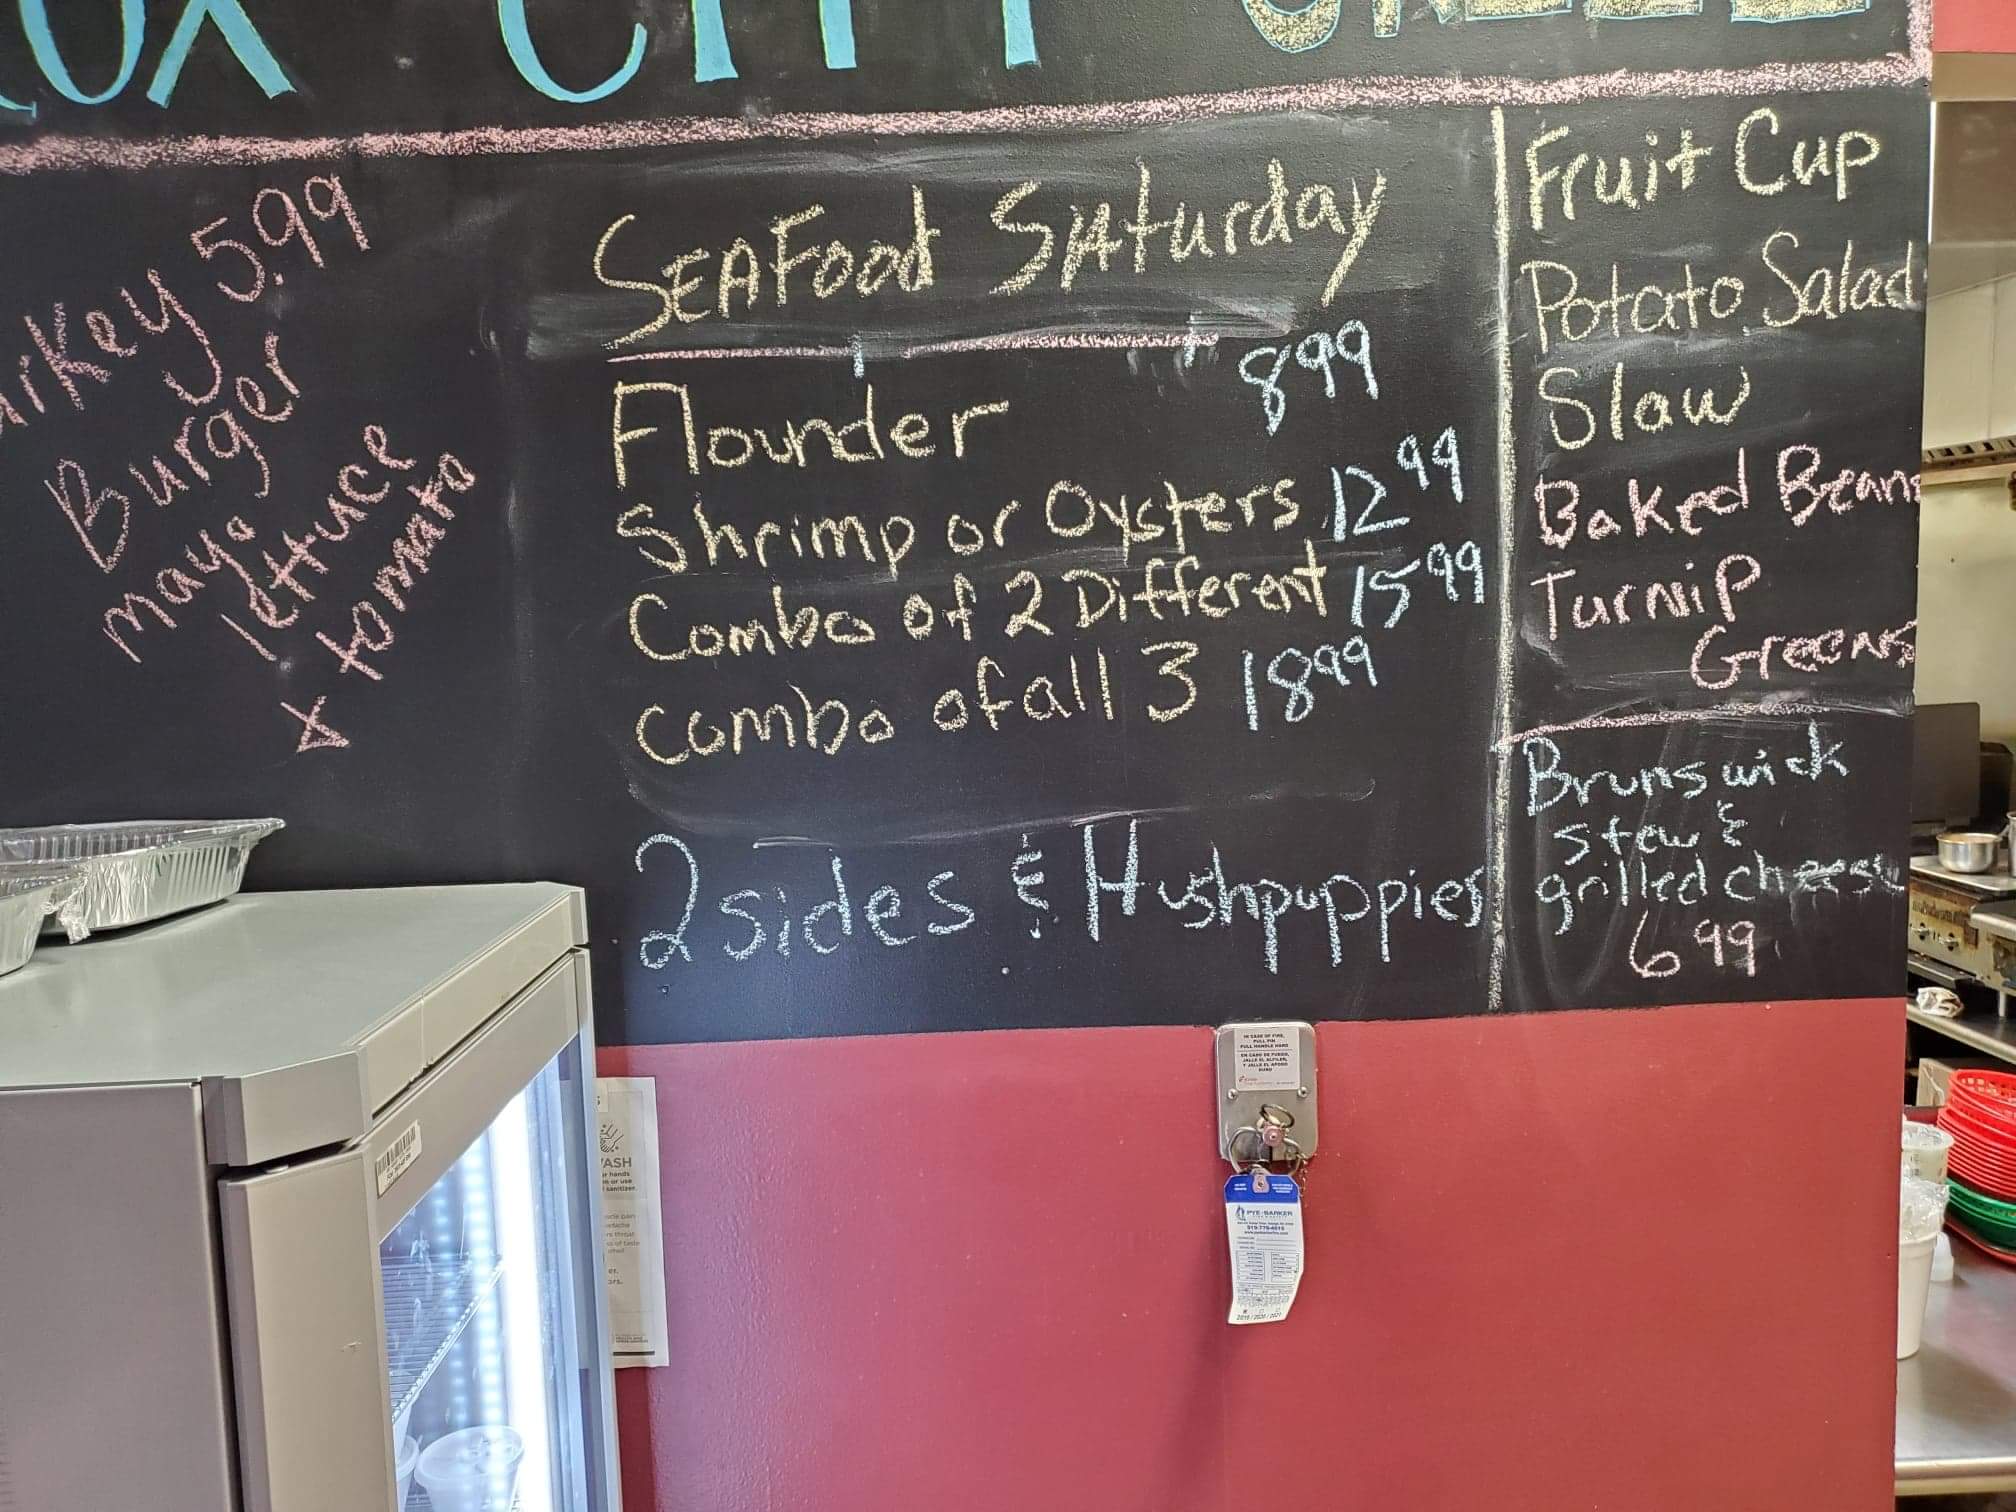 CITY
Turkey 5.99
Burger
mayo
lettuce
x tomato
SEAFood SAturday
Flounder 8 99
Shrimp or Oysters 12 99
Combo of 2 Different 15 99
Combo of all 3 18 99
2 sides & Hushpuppies
Fruit Cup
Potato Salad
Slaw
Baked Beans
Turnip
Greens
Brunswick
stew &
grilled cheese
6 99
IN CASE OF FIRE,
PULL PIN
PULL HANDLE HARD
EN CASO DE FUEGO,
JALLE EL ALFILER,
Y JALLE EL APODO
DURO
PYE-BARKER
919-779-4615
2019 / 2020 / 2021
ASH
r hands
or use
sanitizer.